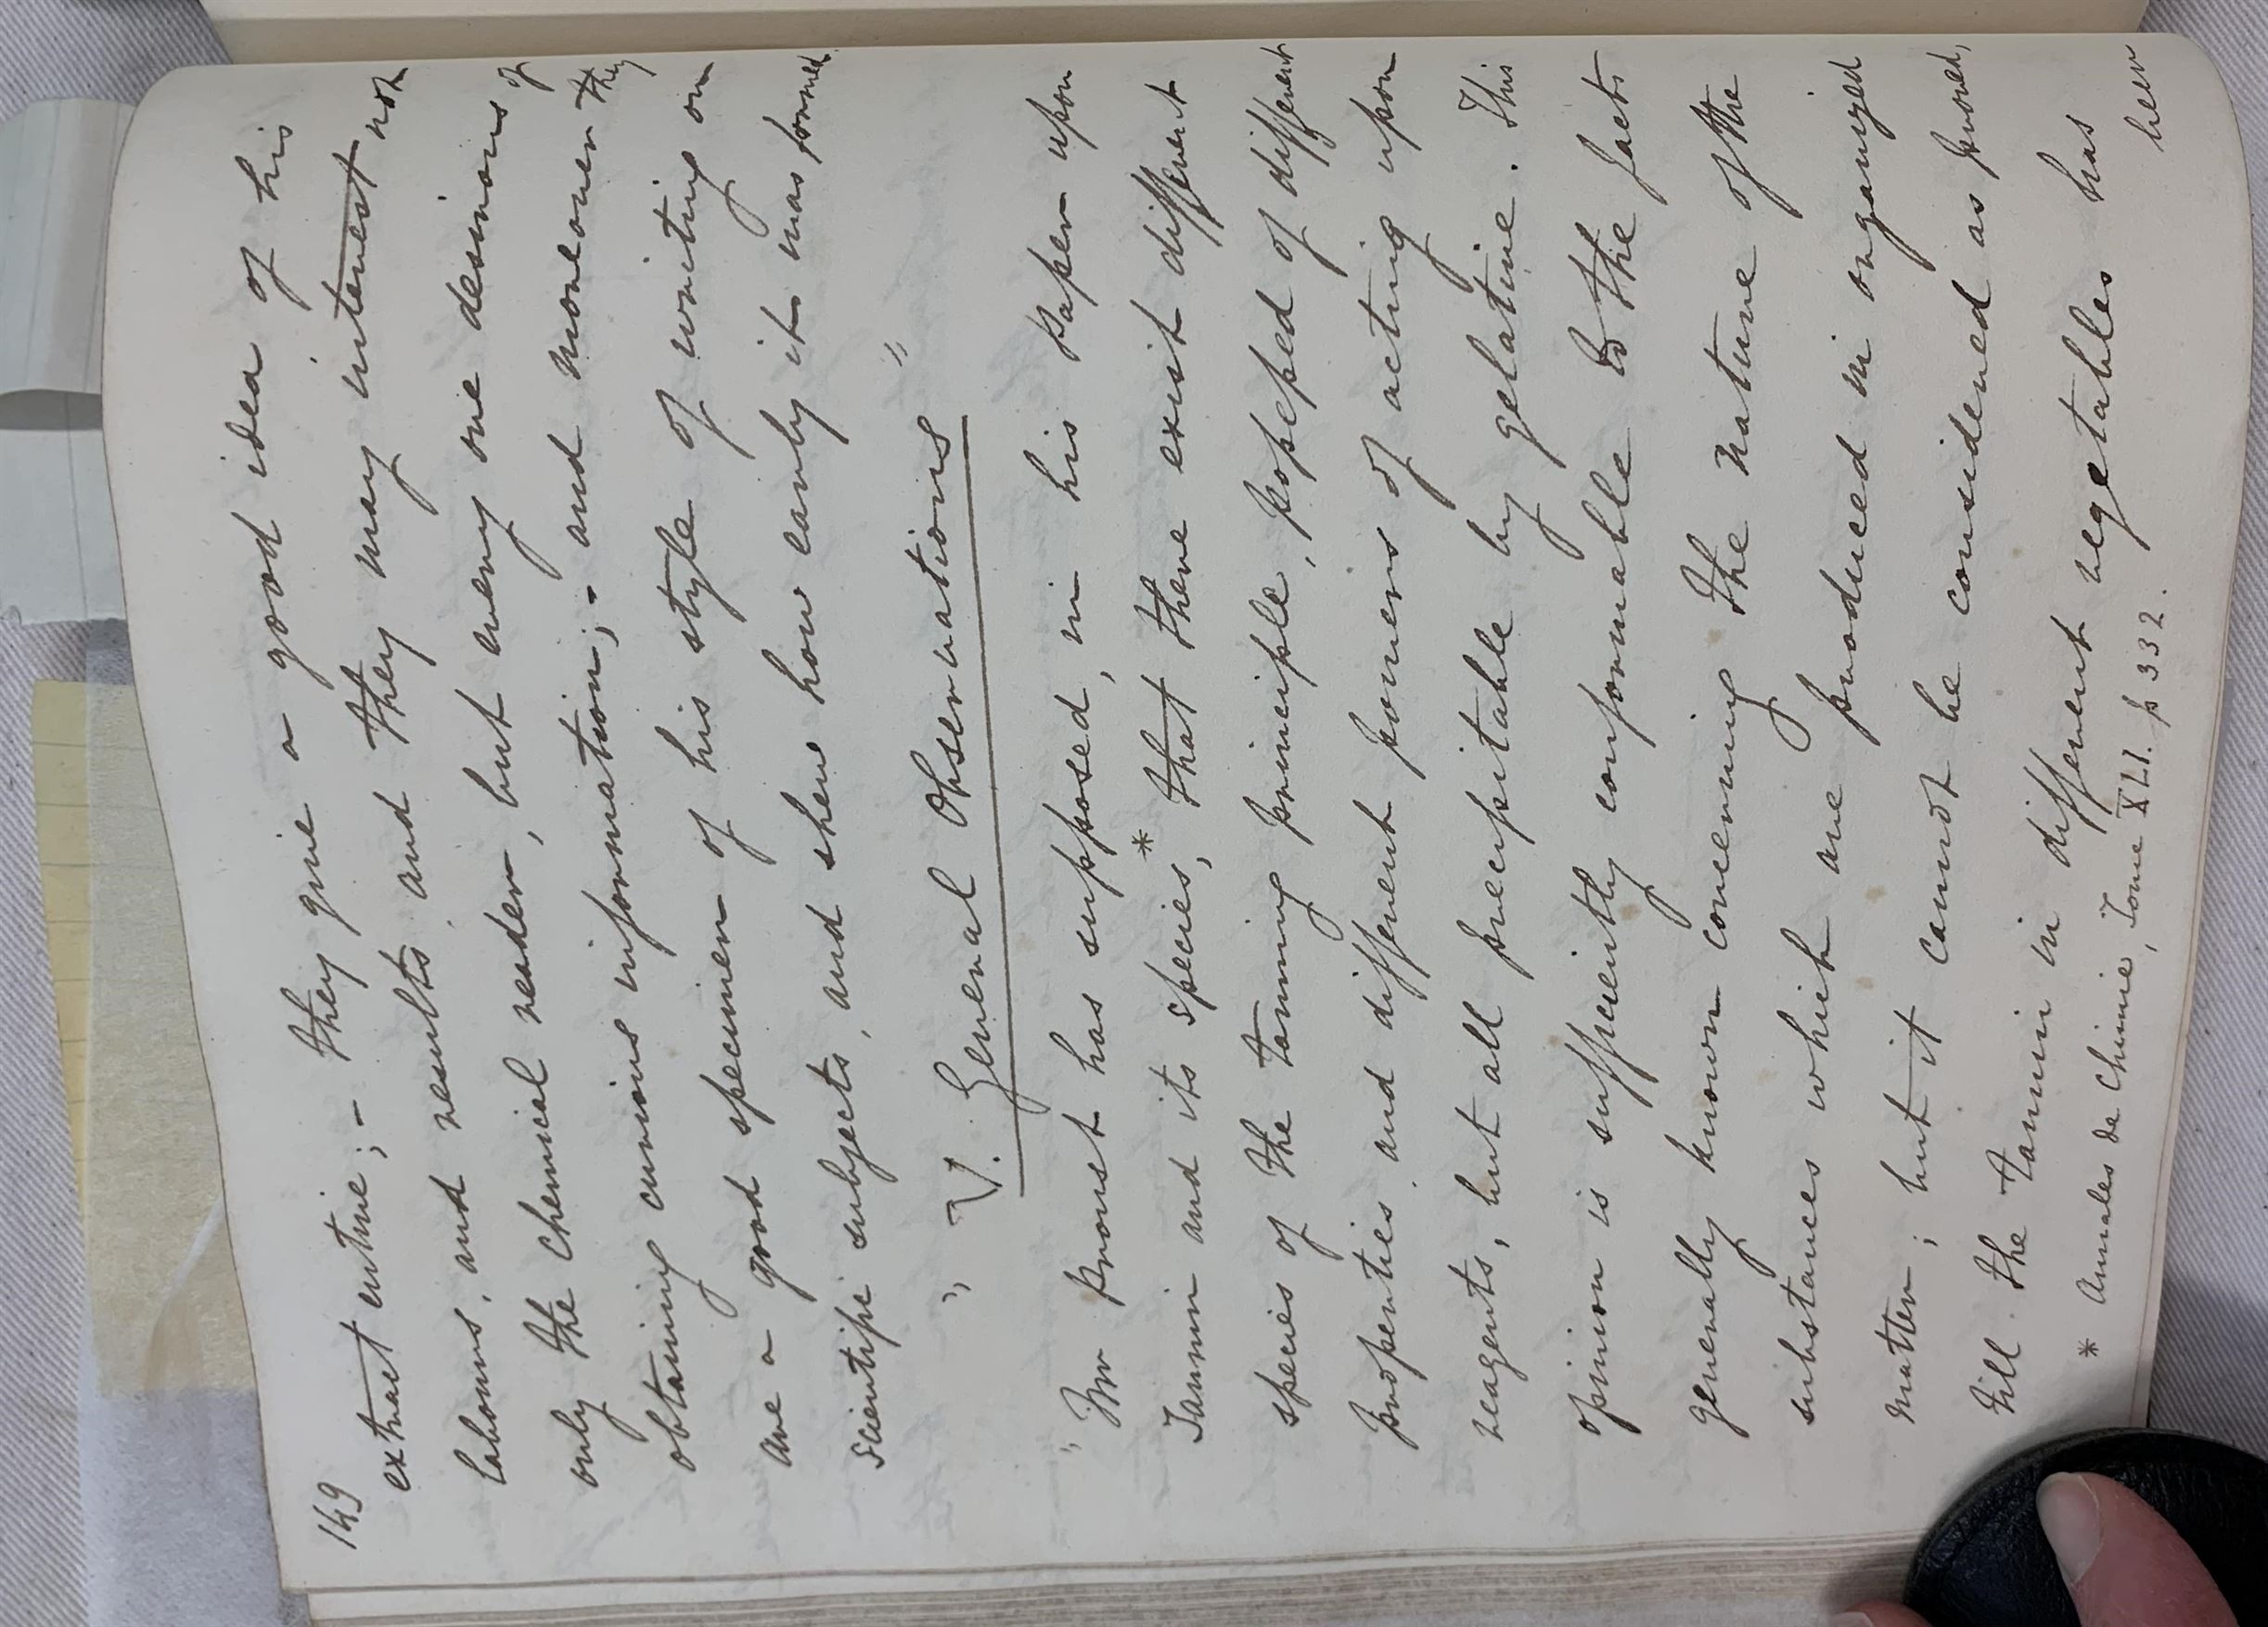 149
extract entire; - they give a good idea of his
labours, and results, and they may interest not
only the chemical reader, but every one desirous of
obtaining curious information; - and moreover they
are a good specimen of his style of writing on
scientific subjects, and shew how early it was formed.
" V. General Observations "
" Mr Proust has supposed, in his paper upon
Tannin and its species,* that there exist different
species of the tanning principle, possessed of different
properties, and different powers of acting upon
reagents, but all precipitable by gelatine. This
opinion is sufficiently conformable to the facts
generally known concerning the nature of the
substances which are produced in organized
matter; but it cannot be considered as proved,
till the tannin in different vegetables has
been
* Annales de Chimie, Tome XLI. p 332.